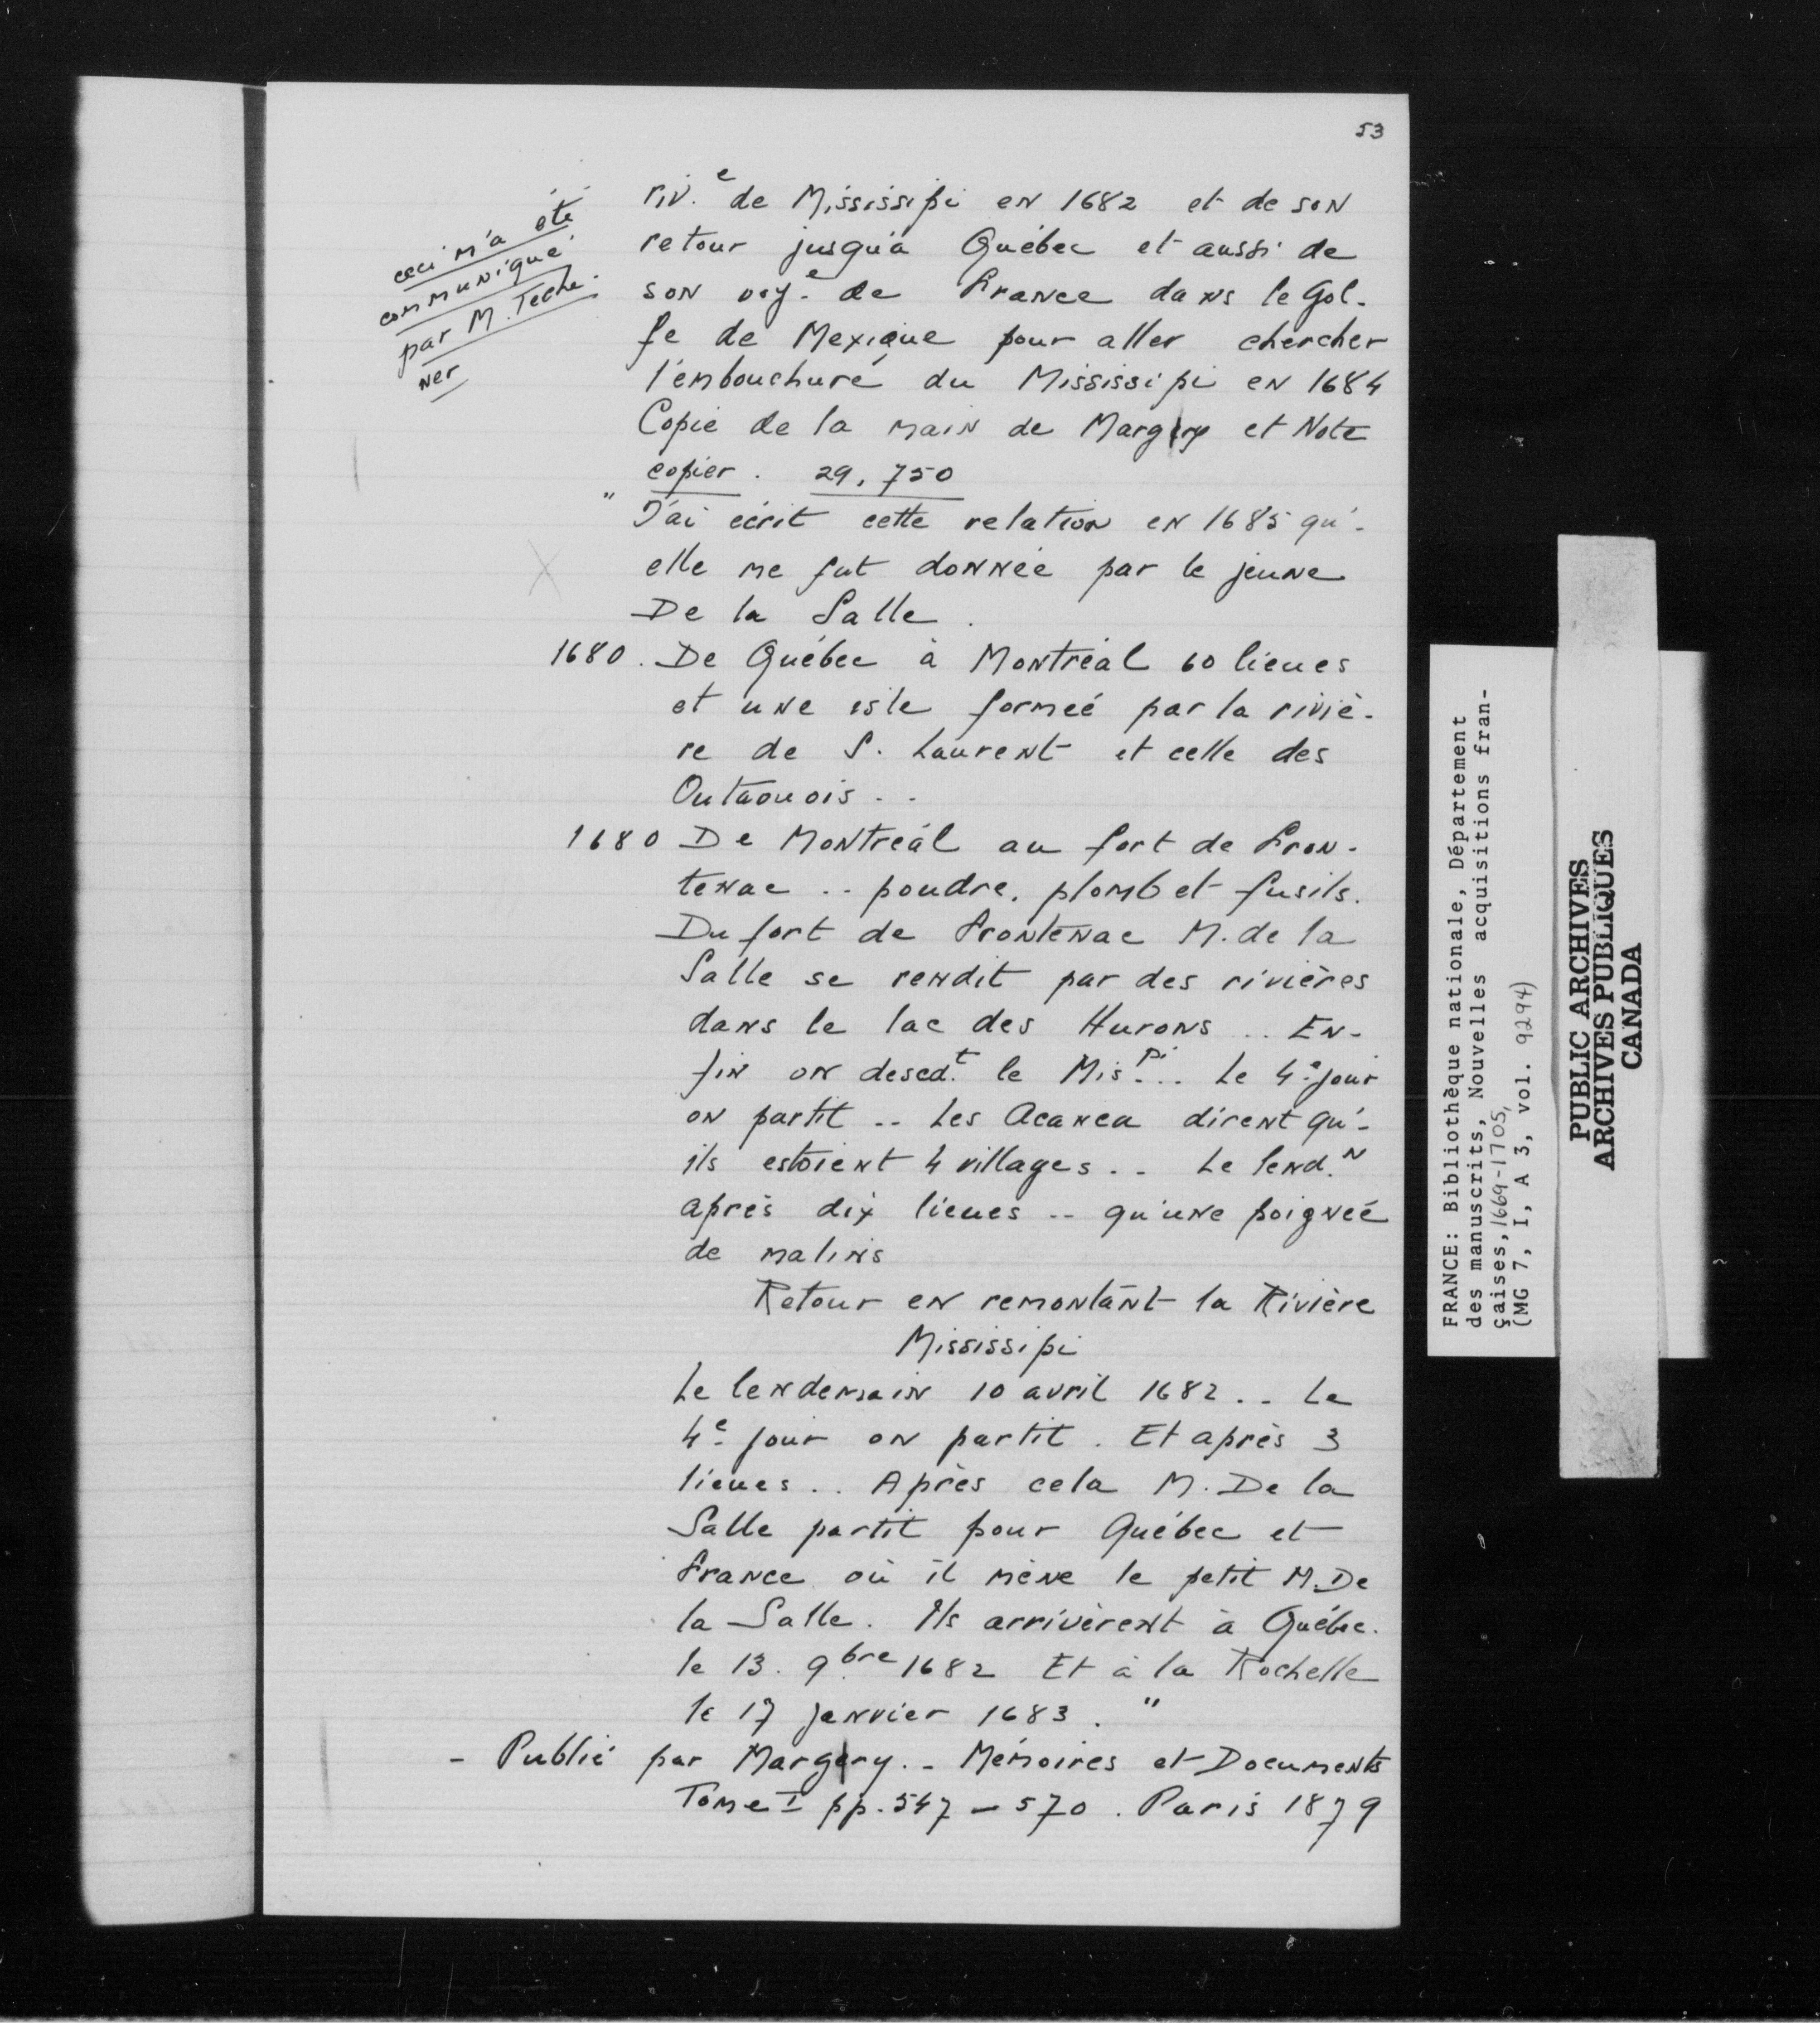 53
riv.e de Mississipi en 1682 et de son
retour jusqu'à Québec et aussi de
son voy.e de France dans le Gol-
fe de Mexique pour aller chercher
l'embouchure du Mississipi en 1684
Copie de la main de Margry et Note
copier. 29,750
ceci m'a été
communiqué
par M. Teche
ner
" J'ai écrit cette relation en 1685 qu'-
elle me fut donnée par le jeune
De la Salle.
1680. De Québec à Montréal 60 lieues
et une isle formée par la riviè-
re de S. Laurent et celle des
Outaouois..
1680 De Montréal au fort de Fron-
tenac .. poudre, plomb et fusils.
Du fort de Frontenac M. de la
Salle se rendit par des rivières
dans le lac des Hurons .. En-
fin on descd.t le Mis.pi .. Le 4.e jour
on partit .. Les Acanca dirent qu'-
ils estoient 4 villages .. Le lend.n
après dix lieues .. qu'une poignée
de malins
Retour en remontant la Rivière
Mississipi
Le lendemain 10 avril 1682 .. Le
4.e jour on partit. Et après 3
lieues .. Après cela M. De la
Salle partit pour Québec et
France où il mène le petit M. De
la Salle. Ils arrivèrent à Québec.
le 13. 9bre 1682 Et à la Rochelle
le 17 janvier 1683. "
- Publié par Margry.- Mémoires et Documents
Tome I pp. 547-570. Paris 1879
FRANCE: Bibliothèque nationale, Département
des manuscrits, Nouvelles acquisitions fran-
çaises, 1669-1705,
(MG 7, I, A 3, vol. 9294)
PUBLIC ARCHIVES
ARCHIVES PUBLIQUES
CANADA